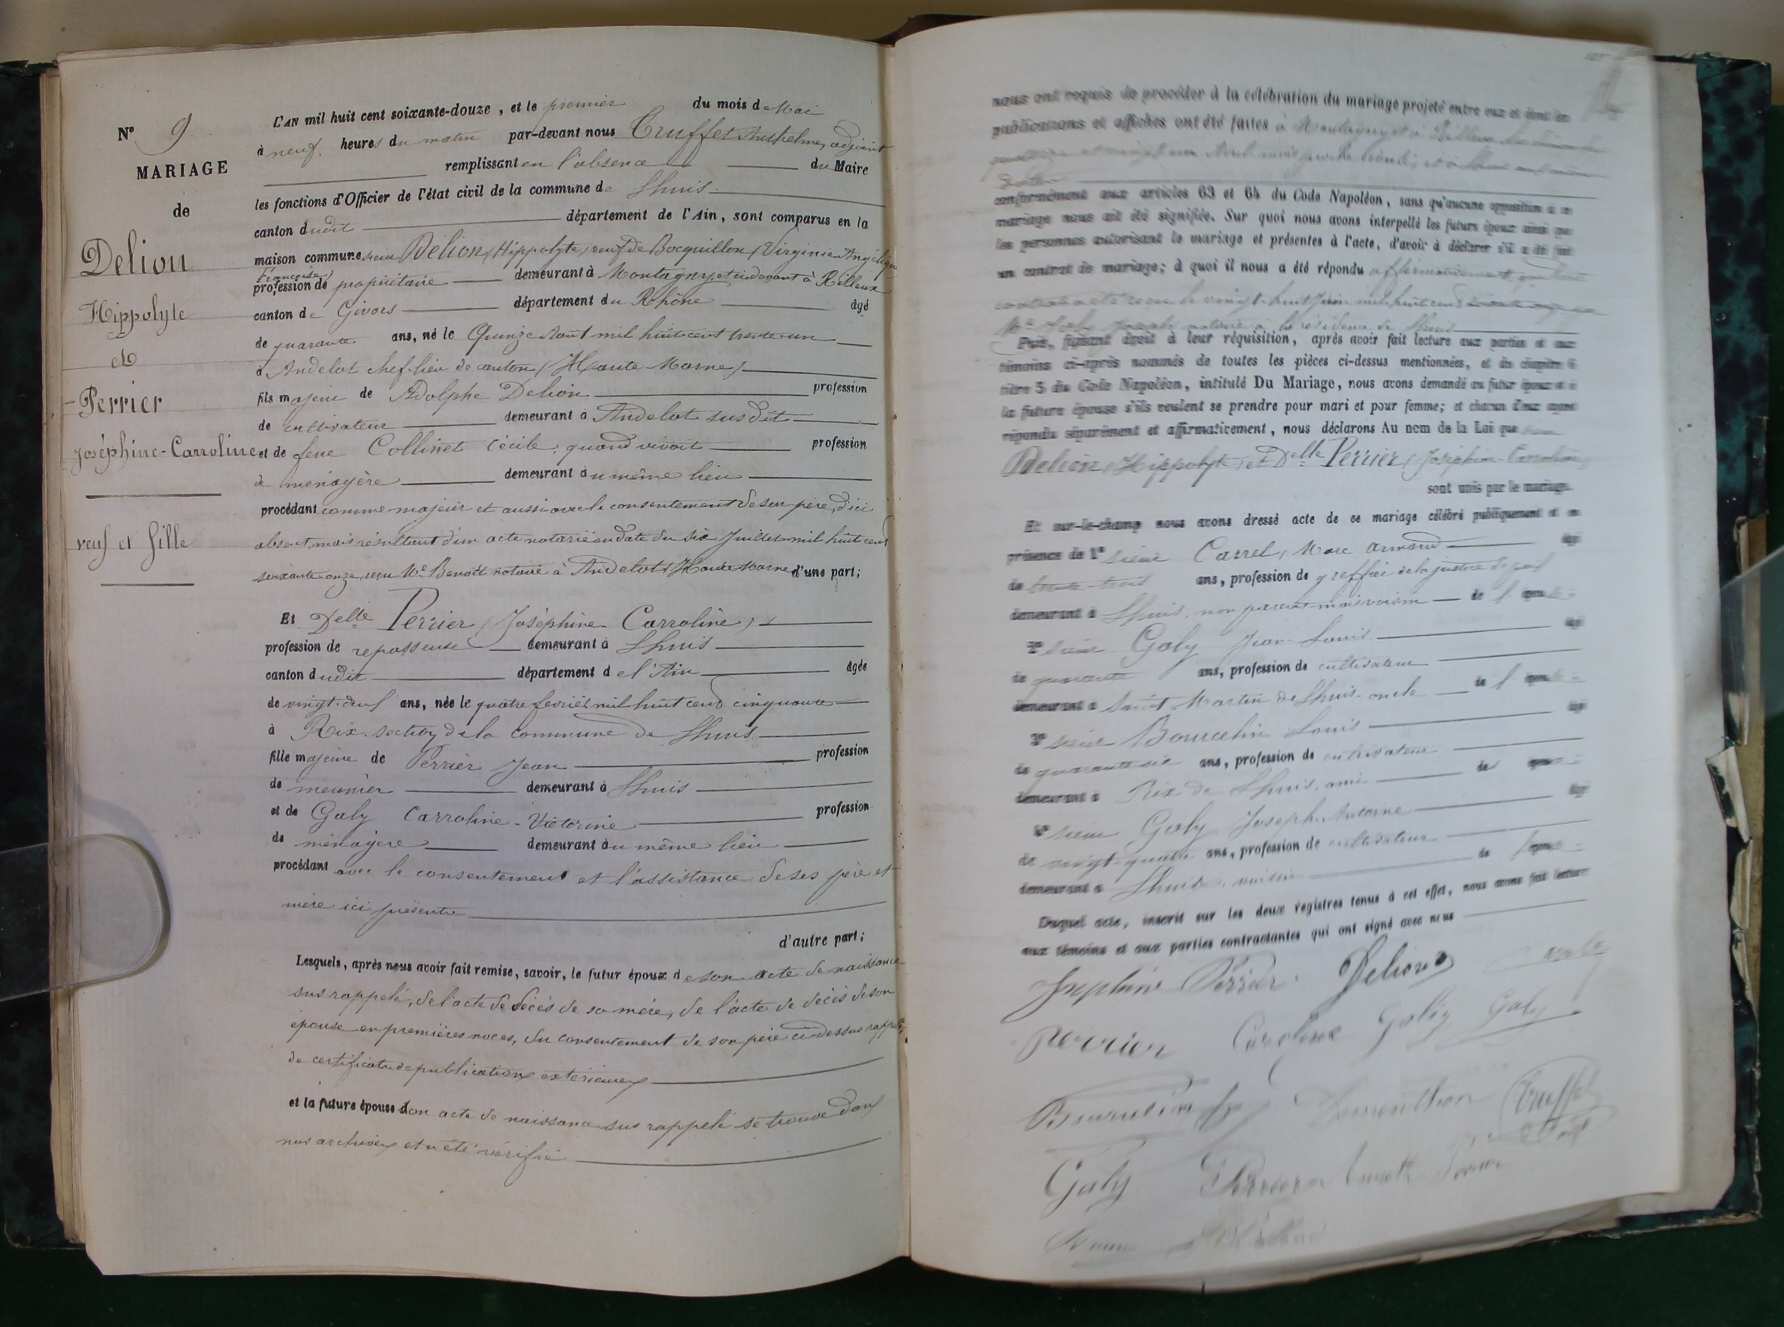 N° 9
MARIAGE
de
Delion
Hippolyte
et
Perrier
Joséphine-Carroline
veuf et fille
L'AN mil huit cent soixante-douze, et le premier du mois de Mai
à neuf heures du matin par-devant nous Truffet Anthelme, adjoint
remplissant en l'absence du Maire
les fonctions d'Officier de l'état civil de la commune de Lhuis
canton dudit département de l'Ain, sont comparus en la
maison commune sieur Delion, Hippolyte, veuf de Bocquillon, Virginie Angélique
Françoise
profession de propriétaire demeurant à Montagny et ci-devant à Rillieux
canton de Givors département du Rhône âgé
de quarante ans, né le Quinze Aout mil huit cent trente un
à Andelot chef-lieu de canton, (Haute Marne)
fils majeur de Adolphe Delion profession
de cultivateur demeurant à Andelot susdit
et de feue Collinet Cécile, quand vivait profession
de ménagère demeurant au même lieu
procédant comme majeur et aussi avec le consentement de son père, d'ici
absent mais résultant d'un acte notarié en date du dix Juillet mil huit cent
soixante onze, reçu Me Benoit notaire à Andelot (Haute Marne) d'une part;
Et Delle Perrier, Joséphine Carroline,
profession de repasseuse demeurant à Lhuis
canton dudit département de l'Ain âgée
de vingt-deux ans, née le quatre février mil huit cent cinquante
à Rix section de la commune de Lhuis
fille majeure de Perrier Jean profession
de meunier demeurant à Lhuis
et de Galy Carroline-Victorine profession
de ménagère demeurant au même lieu
procédant avec le consentement et l'assistance de ses père et
mère ici présents
d'autre part;
Lesquels, après nous avoir fait remise, savoir, le futur époux de son acte de naissance
sus rappelé, de l'acte de décès de sa mère, de l'acte de décès de son
épouse en premières noces, du consentement de son père ci dessus rappelé
de certificats de publications extérieures
et la future épouse dont acte de naissance sus rappelé se trouve dans
nos archives et a été vérifié
nous ont requis de procéder à la célébration du mariage projeté entre eux et dont les
publications et affiches ont été faites à Montagny et à Rillieux
conformément aux articles 63 et 64 du Code Napoléon, sans qu'aucune opposition à ce
mariage nous ait été signifiée. Sur quoi nous avons interpellé les futurs époux ainsi que
les personnes autorisant le mariage et présentes à l'acte, d'avoir à déclarer s'il a été fait
un contrat de mariage; à quoi il nous a été répondu affirmativement,
contrat a été reçu le vingt-huit Juin mil huit cent soixante onze
Me Galy Joseph notaire à la résidence de Lhuis
Puis, faisant droit à leur réquisition, après avoir fait lecture aux parties et aux
témoins ci-après nommés de toutes les pièces ci-dessus mentionnées, et du chapitre 6
titre 5 du Code Napoléon, intitulé Du Mariage, nous avons demandé au futur époux et à
la future épouse s'ils veulent se prendre pour mari et pour femme; et chacun d'eux ayant
répondu séparément et affirmativement, nous déclarons Au nom de la Loi que
Delion, Hippolyte, et Delle Perrier, Joséphine Carroline,
sont unis par le mariage.
Et sur-le-champ nous avons dressé acte de ce mariage célébré publiquement et en
présence de 1° sieur Carrel, Marc Armand âgé
de trente-trois ans, profession de greffier de la justice de paix
demeurant à Lhuis, non parent mais voisin de l'épouse
2° sieur Galy Jean-Louis âgé
de quarante ans, profession de cultivateur
demeurant à Saint Martin de Lhuis, oncle de l'épouse
3° sieur Bourcelin Louis âgé
de quarante six ans, profession de cultivateur
demeurant à Rix de Lhuis, ami de épouse
4° sieur Galy Joseph-Antoine âgé
de vingt-quatre ans, profession de cultivateur
demeurant à Lhuis, voisin de l'épouse
Duquel acte, inscrit sur les deux registres tenus à cet effet, nous avons fait lecture
aux témoins et aux parties contractantes qui ont signé avec nous
Joséphine Perrier Delion
Perrier Caroline Galy Galy
Bourcelin Truffet
Galy Perrier